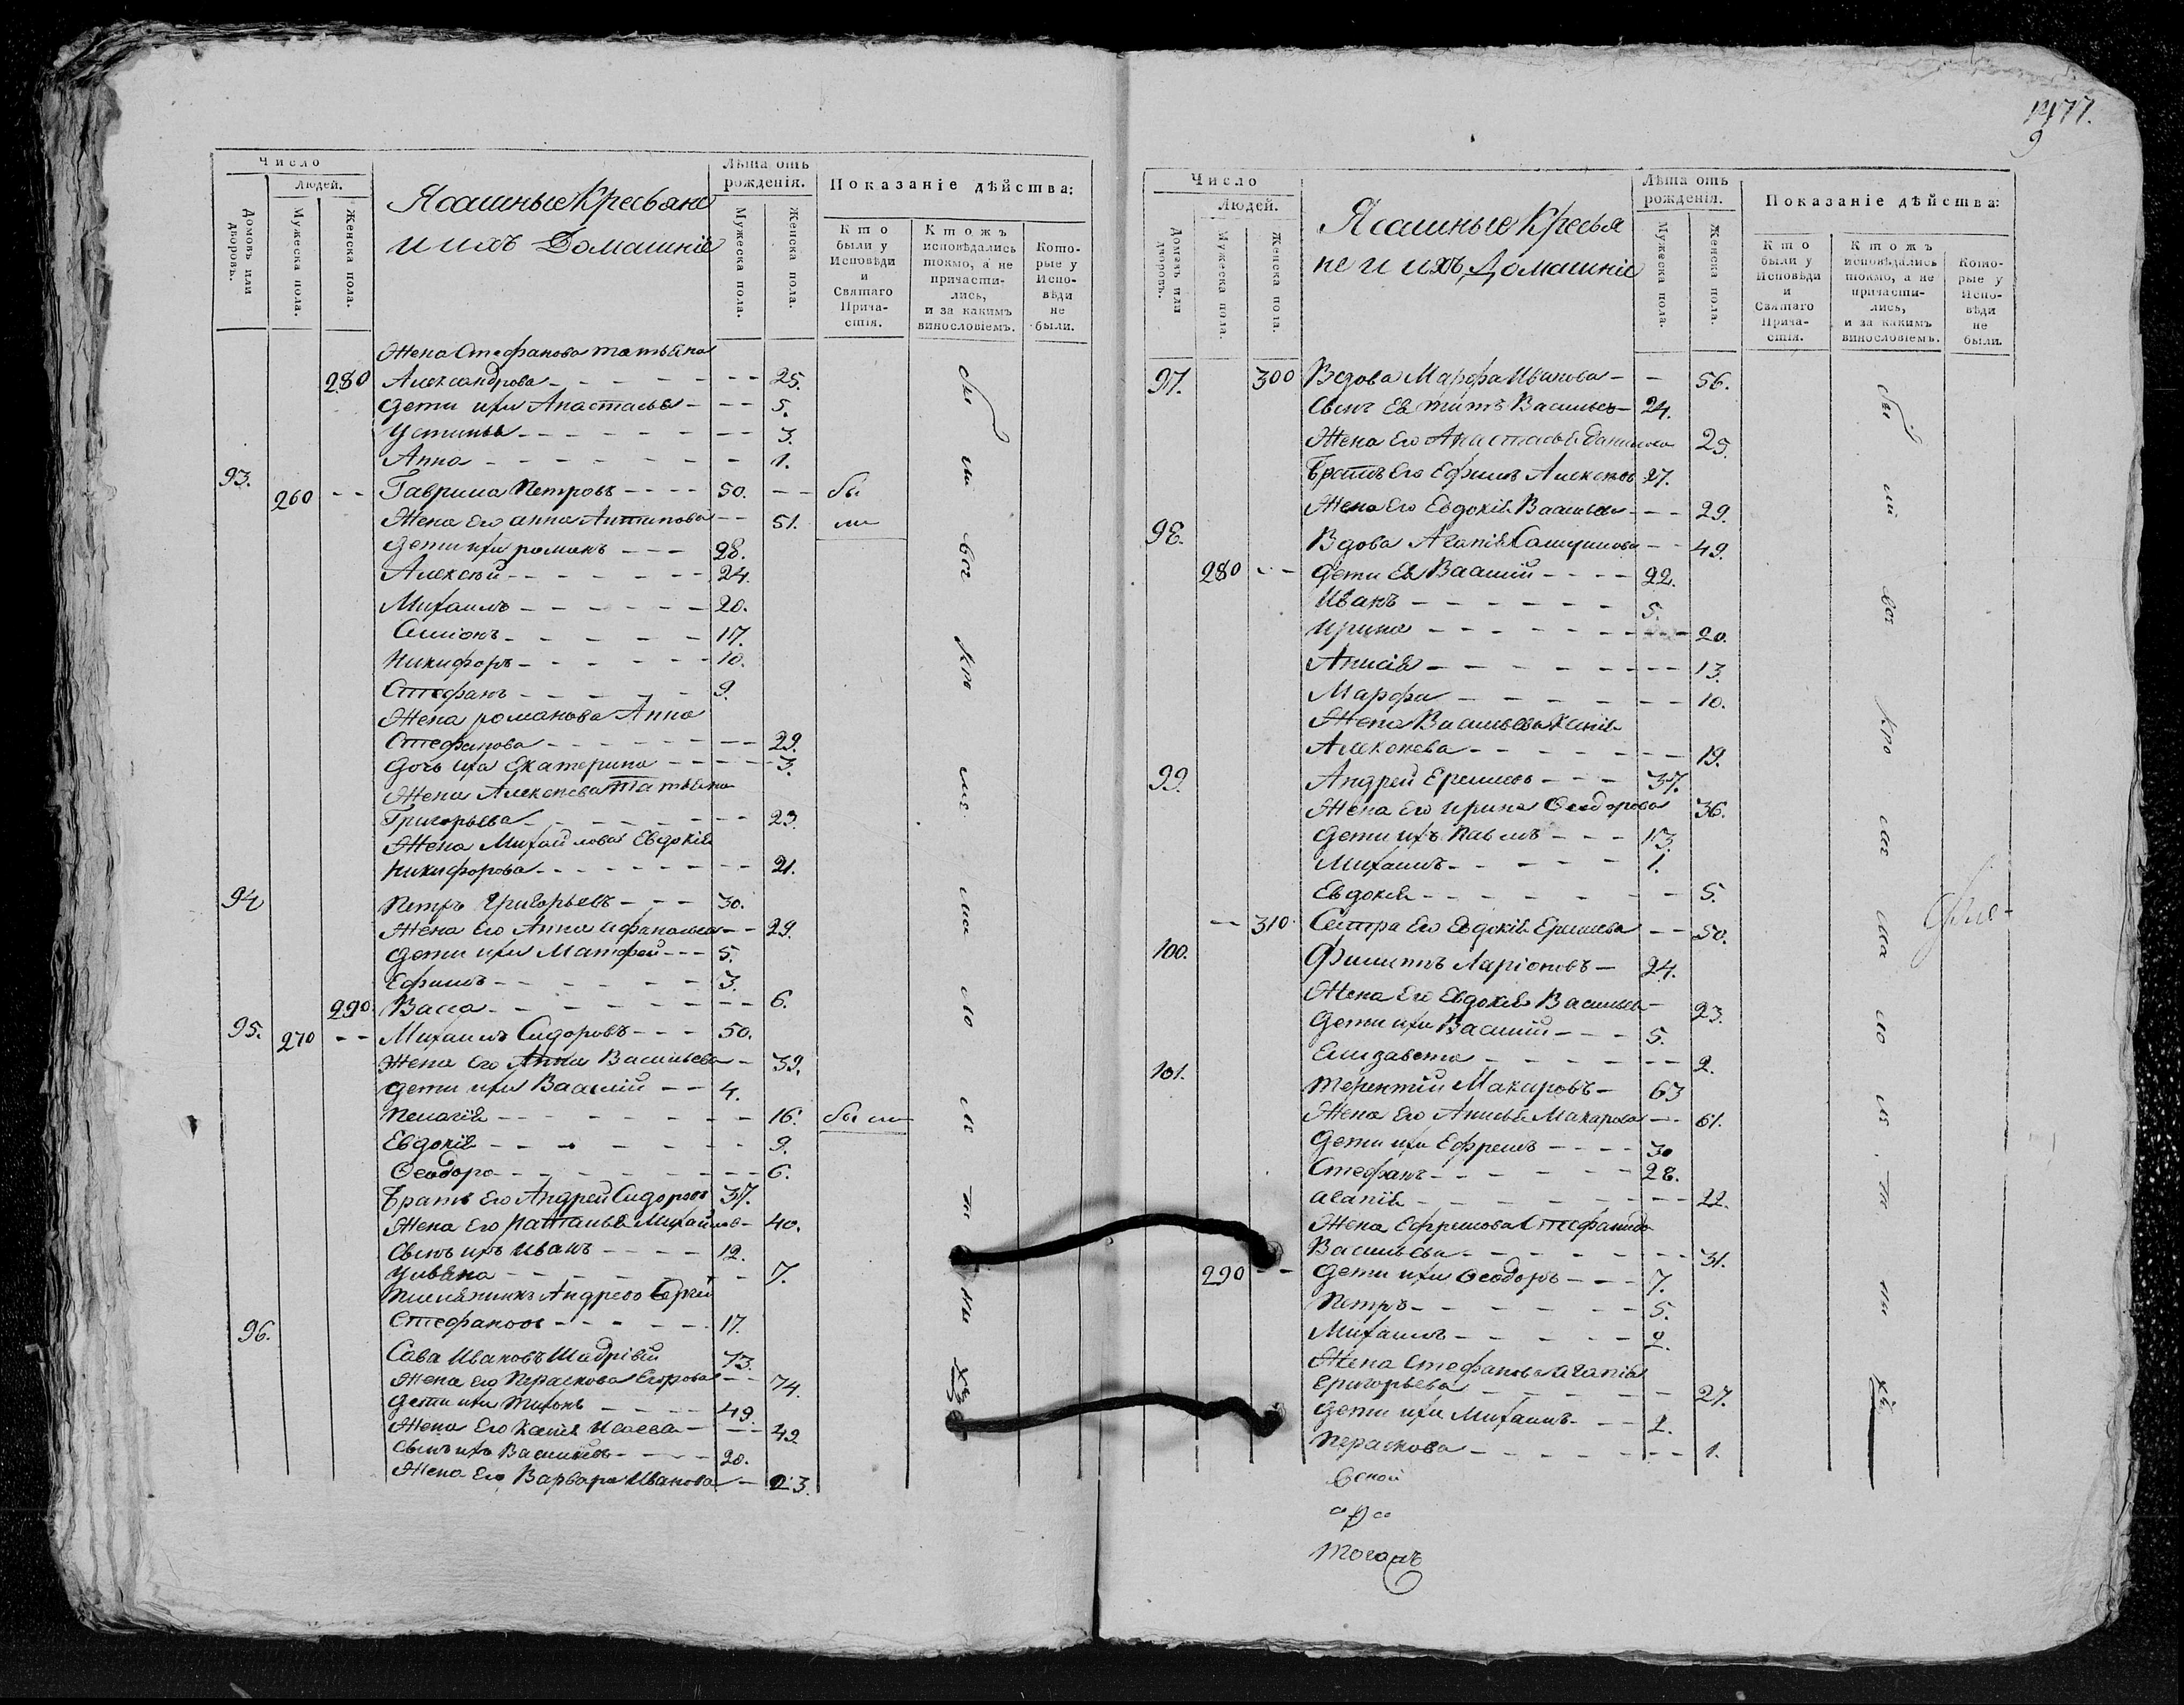 1477.
9
Число
Людей.
Домовъ или дворовъ.
Мужеска пола.
Женска пола.
Ясашные Кресьяне
и ихъ Домашніе
Лѣта отъ рожденія.
Мужеска пола.
Женска пола.
Показаніе дѣйства:
Кто были у Исповѣди и Святаго Причастія.
Ктожъ исповѣдались токмо, а не причастились, и за какимъ винословіемъ.
Которые у Исповѣди не были.
Жена Стефанова татьяна
280 Александрова - - - 25.
дети ихъ Анастасья - - - 5.
Устинья - - - 3.
Анна - - - 1.
93. 260 - - Гаврила Петровъ - - - 50. - - бы
Жена его анна Антипова - - 51. ли
дети ихъ романъ - - - 28.
Алексѣй - - - 24.
Михаилъ - - - 20.
Симіонъ - - - 17.
Никифоръ - - - 10.
Стефанъ - - - 9.
Жена романова Анна
Стефанова - - - 29.
дочь ихъ Екатерина - - - 3.
Жена Алексѣева Татьяна
Григорьева - - - 23.
Жена Михайлова Евдокія
Никифорова - - - 21.
94 Петръ Григорьевъ - - - 30.
Жена его Анна Афанасьева - - 29.
дети ихъ Матфей - - - 5.
Ефимъ - - - 3.
290 Васса - - - 6.
95. 270 - - Михаилъ Сидоровъ - - - 50.
Жена его Анна Васильева - 39.
дети ихъ Василій - - 4.
Пелагія - - - 16. были
Евдокія - - - 9.
Ѳеодора - - - 6.
Братъ его Андрей Сидоровъ 37.
Жена его Наталья Михайлов - 40.
Сынъ ихъ Иванъ - - - 12.
Ульяна - - - 7.
Племянникъ Андреевъ Сергей
Стефановъ - - - 17.
96. Сава Ивановъ 73.
Жена его Пераскова Егорова - - 74.
дети ихъ Тихонъ - - - 49.
Жена его Ксенія Исаева - - - 49
Сынъ ихъ Василій - - - 20.
Жена его Варвара Иванова - 23.
Число
Людей.
Домовъ или дворовъ.
Мужеска пола.
Женска пола.
Ясашные Кресья
не и ихъ Домашніе
Лѣта отъ рожденія.
Мужеска пола.
Женска пола.
Показаніе дѣйства:
Кто были у Исповѣди и Святаго Причастія.
Ктожъ исповѣдались токмо, а не причастились, и за какимъ винословіемъ.
Которые у Исповѣди не были.
97. 300 Вдова Марфа Иванова - - 56.
Сынъ Ея титъ Васильевъ - 24.
Жена его Анастасья Данилова 25.
Братъ его Ефимъ 27.
Жена его Евдокія Васильева - - - 29.
98. Вдова Агапія - - 49.
280 - - дети Ея Василій - - - 22.
Иванъ - - - 5.
Ирина - - - 20.
Анисія - - - 13.
Марфа - - - 10.
Жена Васильева Ксенія
Алексеева - - - 19.
99. Андрей Еремеевъ - - - 37.
Жена его Ирина Ѳеодорова 36.
дети ихъ Павелъ - - - 13.
Михаилъ - - - 1.
Евдокія - - - 5.
- - 310. Сестра его Евдокія Еремеева - - 50.
100. Филиппъ Ларіоновъ - 24.
Жена его Евдокія Васильева - 23.
Дети ихъ Василій - - - 5.
Елизавета - - - 2.
101. Терентій Макаровъ - 63
Жена его Анисья Макарова - - 61.
Дети ихъ Ефремъ - - - 30
Стефанъ - - - 28.
агапія - - - 22.
Жена Ефремова Стефанида
Васильева - - - 31.
290 - - Дети ихъ Ѳеодоръ - - - 7.
Петръ - - - 5.
Михаилъ - - - 2.
Жена Стефанова Агапія
Григорьева - - - 27.
Дети ихъ Михаилъ - - - 2.
Пераскова - - - 1.